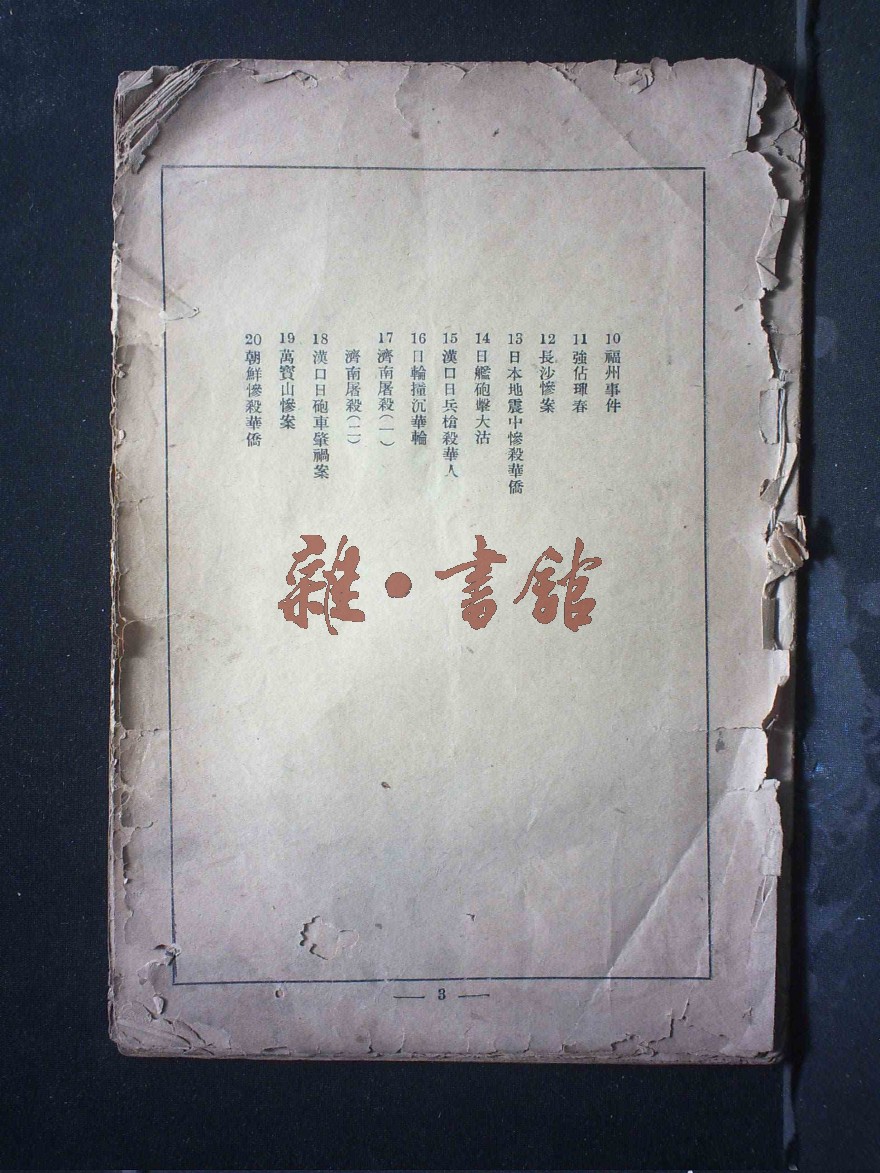 10 福州事件
11 強佔琿春
12 長沙慘案
13 日本地震中慘殺華僑
14 日艦砲擊大沽
15 漢口日兵槍殺華人
16 日輪撞沉華輪
17 濟南屠殺(一)
濟南屠殺(二)
18 漢口日砲車肇禍案
19 萬寶山慘案
20 朝鮮慘殺華僑
雜·書館
— 3 —